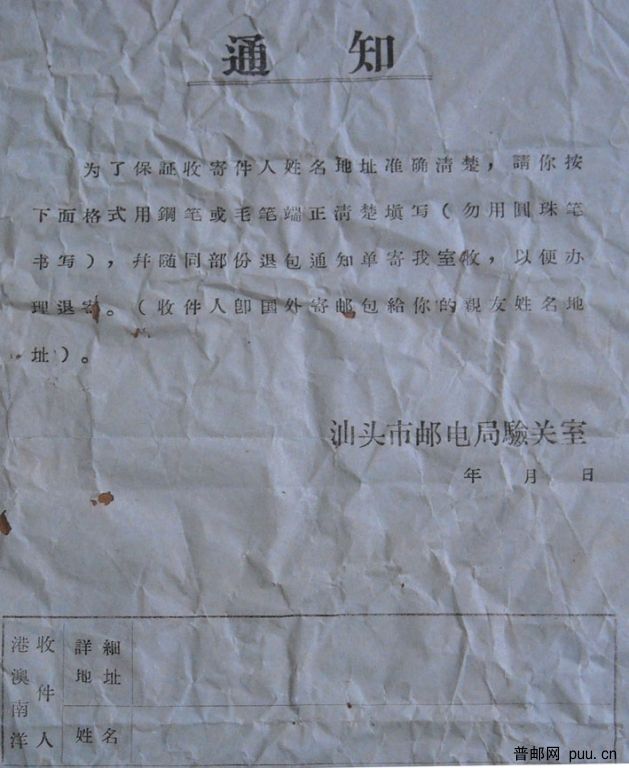 通知
为了保証收寄件人姓名地址准确清楚，請你按
下面格式用鋼笔或毛笔端正清楚塡写（勿用圓珠笔
书写），幷随同部份退包通知单寄我室收，以便办
理退寄。（收件人卽国外寄邮包給你的親友姓名地
址）。
汕头市邮电局驗关室
年 月 日
港澳南洋
收件人
詳細
地址
姓名
普邮网 puu.cn